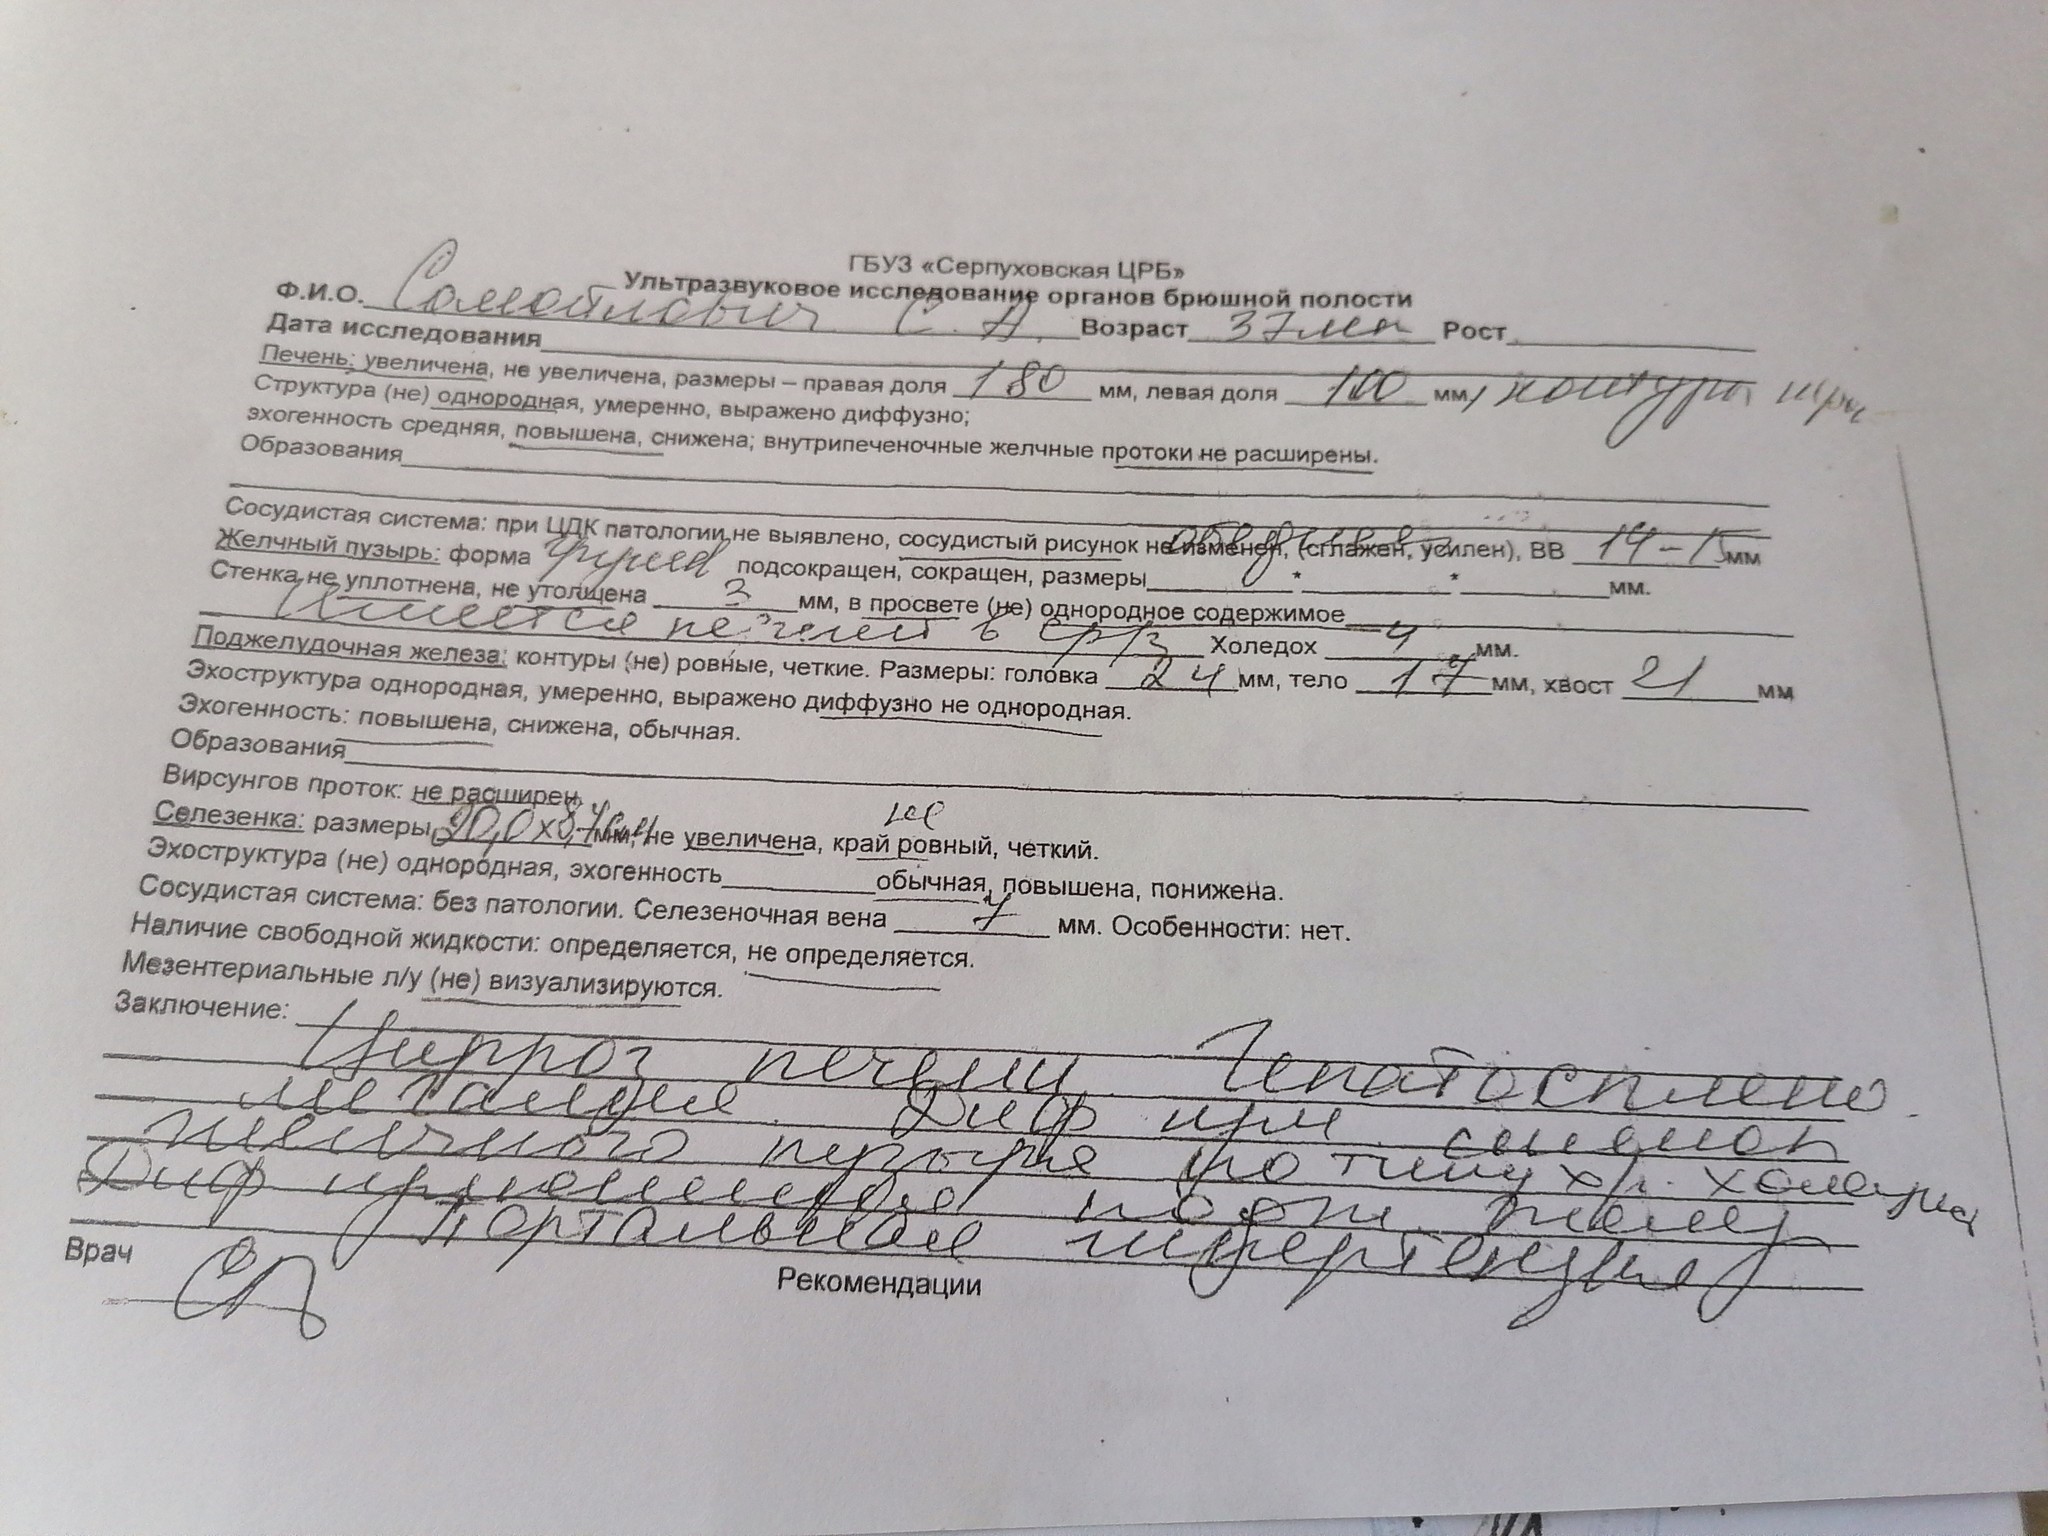 ГБУЗ «Серпуховская ЦРБ»
Ультразвуковое исследование органов брюшной полости
Ф.И.О. Самойлович С. А. Возраст 37 лет Рост
Дата исследования
Печень: увеличена, не увеличена, размеры – правая доля 180 мм, левая доля 100 мм, контуры
Структура (не) однородная, умеренно, выражено диффузно;
эхогенность средняя, повышена, снижена; внутрипеченочные желчные протоки не расширены.
Образования
Сосудистая система: при ЦДК патологии не выявлено, сосудистый рисунок не изменен, (сглажен, усилен), ВВ 14-15 мм
Желчный пузырь: форма подсокращен, сокращен, размеры * * мм.
Стенка не уплотнена, не утолщена 3 мм, в просвете (не) однородное содержимое
Имеется в Холедох 4 мм.
Поджелудочная железа: контуры (не) ровные, четкие. Размеры: головка 24 мм, тело 17 мм, хвост 21 мм
Эхоструктура однородная, умеренно, выражено диффузно не однородная.
Эхогенность: повышена, снижена, обычная.
Образования
Вирсунгов проток: не расширен
не
Селезенка: размеры 20,0 х 8,7 см мм, не увеличена, край ровный, четкий.
Эхоструктура (не) однородная, эхогенность обычная, повышена, понижена.
Сосудистая система: без патологии. Селезеночная вена 7 мм. Особенности: нет.
Наличие свободной жидкости: определяется, не определяется.
Мезентериальные л/у (не) визуализируются.
Заключение:
Цирроз печени. Гепатосплено
мегалия. Диф изм стенок
желчного пузыря по типу хр. холецист
Диф изменения подж. желез
Портальная гипертензия
Врач
Рекомендации